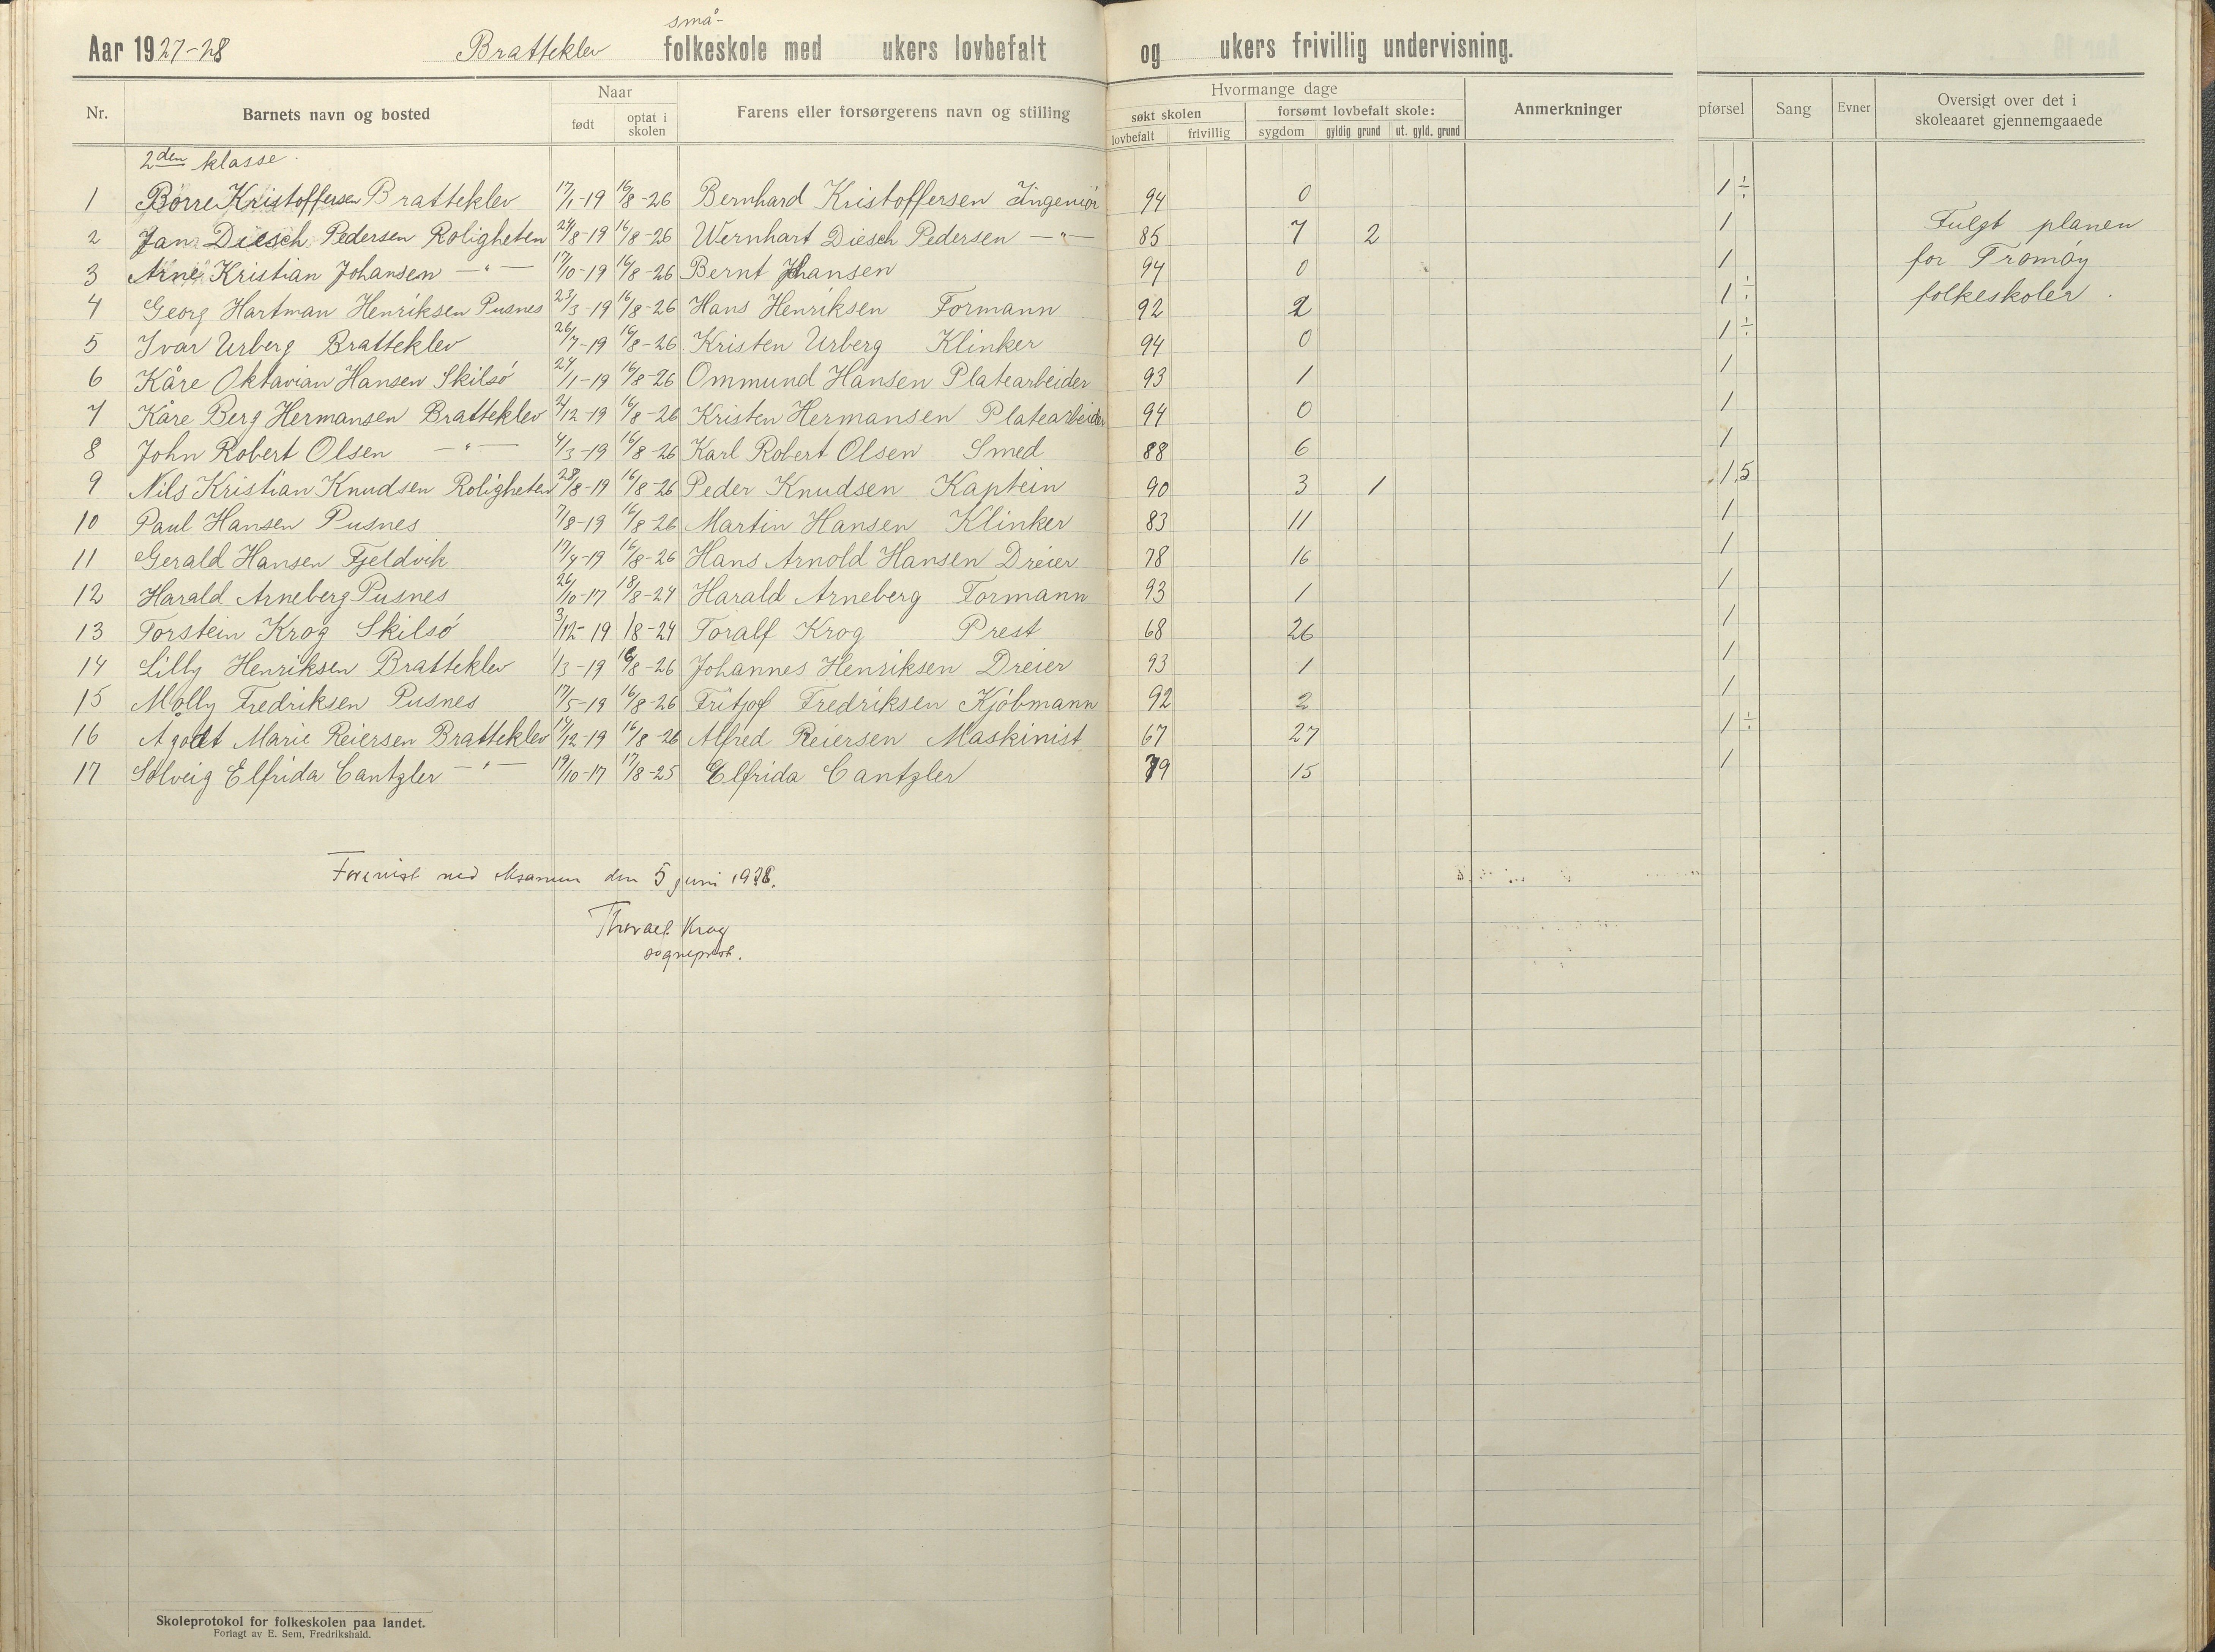 små-
Aar 1927-28 Bratteklev folkeskole med ukers lovbefalt og ukers frivillig undervisning.
Nr. Barnets navn og bosted Naar født optat i skolen Farens eller forsørgerens navn og stilling Hvormange dage søkt skolen lovbefalt frivillig forsømt lovbefalt skole: sygdom gyldig grund ut. gyld. grund Anmerkninger pførsel Sang Evner Oversigt over det i skoleaaret gjennemgaaede
2den klasse.
1 Børre Kristoffersen Bratteklev 17/1-19 16/8-26 Bernhard Kristoffersen Ingeniör 94 0 1 ÷
2 Jan Diesch Pedersen Roligheten 24/8-19 16/8-26 Wernhart Diesch Pedersen —"— 85 7 2 1 Fulgt planen
3 Arne Kristian Johansen —"— 17/10-19 16/8-26 Bernt Johansen 94 0 1 for Tromöy
4 Georg Hartman Henriksen Pusnes 23/3-19 16/8-26 Hans Henriksen Formann 92 2 1 ÷ folkeskoler.
5 Ivar Urberg Bratteklev 26/7-19 16/8-26 Kristen Urberg Klinker 94 0 1 ÷
6 Kåre Oktavian Hansen Skilsö 24/1-19 16/8-26 Ommund Hansen Platearbeider 93 1 1
7 Kåre Berg Hermansen Bratteklev 21/12-19 16/8-26 Kristen Hermansen Platearbeider 94 0 1
8 John Robert Olsen —"— 4/3-19 16/8-26 Karl Robert Olsen Smed 88 6 1
9 Nils Kristian Knudsen Roligheten 28/8-19 16/8-26 Peder Knudsen Kaptein 90 3 1 1,5
10 Paul Hansen Pusnes 7/8-19 16/8-26 Martin Hansen Klinker 83 11 1
11 Gerald Hansen Fjeldvik 17/4-19 16/8-26 Hans Arnold Hansen Dreier 78 16 1
12 Harald Arneberg Pusnes 26/10-17 18/8-24 Harald Arneberg Formann 93 1 1
13 Torstein Krog Skilsö 3/12-19 18-24 Toralf Krog Prest 68 26 1
14 Lilly Henriksen Bratteklev 1/3-19 16/8-26 Johannes Henriksen Dreier 93 1 1
15 Molly Fredriksen Pusnes 17/5-19 16/8-26 Fritjof Fredriksen Kjöbmann 92 2 1
16 Ågodt Marie Reiersen Bratteklev 14/12-19 16/8-26 Alfred Reiersen Maskinist 67 27 1 ÷
17 Solveig Elfrida Cantzler —"— 19/10-17 17/8-25 Elfrida Cantzler 79 15 1
Forevist ved eksamen den 5 juni 1928.
Thoralf Krog
sogneprest.
Skoleprotokol for folkeskolen paa landet.
Forlagt av E. Sem, Fredrikshald.